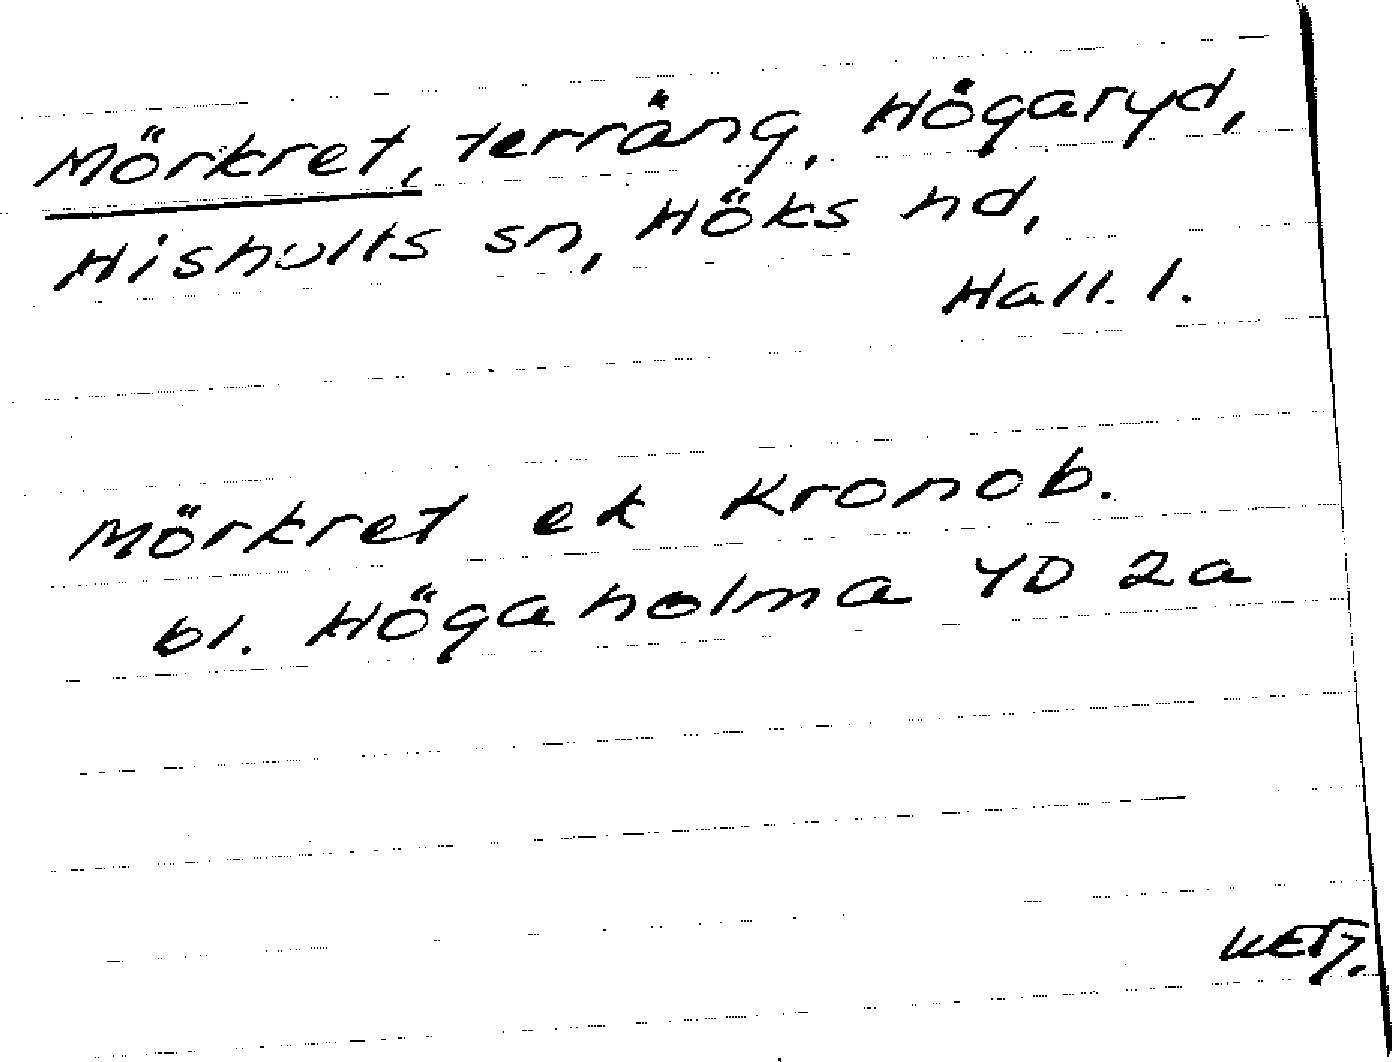 Mörkret, terräng, Högaryd,
Hishults sn, Höks hd,
Hall. l.
Mörkret ek Kronob.
bl. Högaholma YD 2a